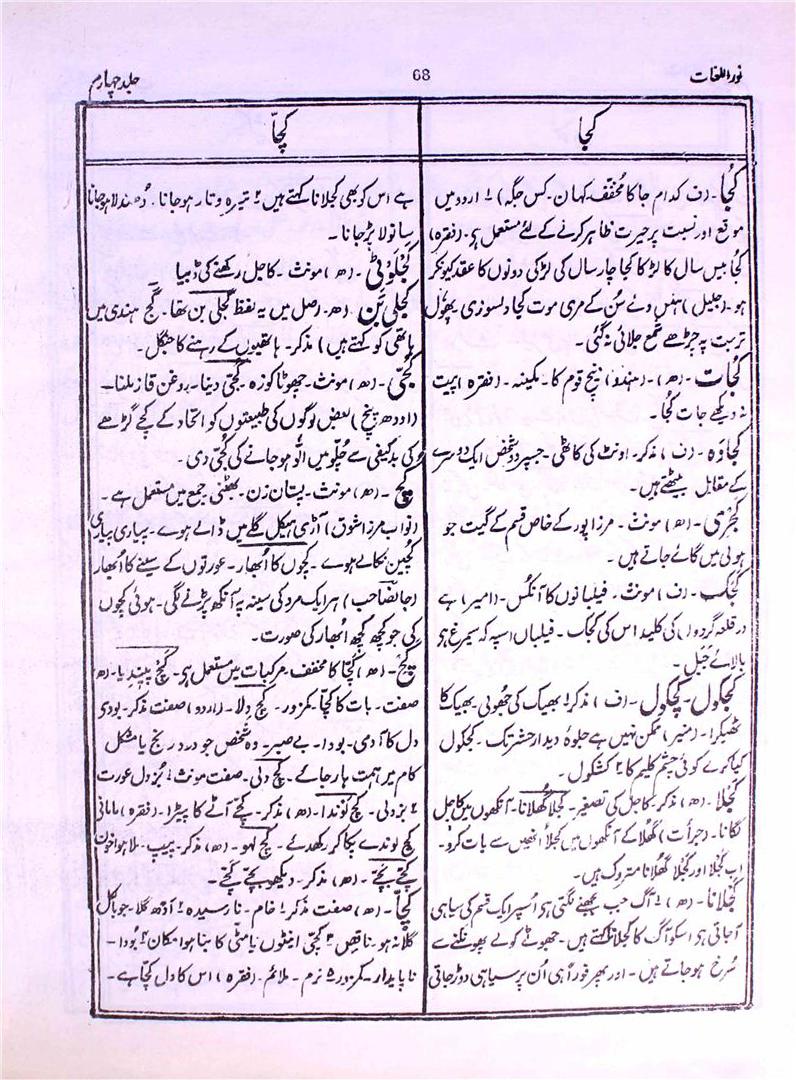 نوراللغات
68
جلد چہارم
کجا
کچّا
کُجا۔ (ف کدام جا کا مخفف۔ کہاں۔ کس جگہ) ! اردو میں
موقع اور نسبت پر حیرت ظاہر کرنے کے لئے مستعمل ہے۔ (فقرہ)
کجا بیس سال کا لڑکا کجا چار سال کی لڑکی دونوں کا عقد کیونکر
ہو۔ (جلیل) ہنس دئے سُن کے مری موت کجا دلسوزی پھول
تربت پہ چڑھے شمع جلائی نہ گئی۔
کُجات۔ (ھ)۔ (ہندو) نیچ قوم کا۔ کمینہ۔ (فقرہ) پریت
نہ دیکھے جات کُجا۔
کجاوَہ۔ (ف) مذکر۔ اونٹ کی کاٹھی۔ جسپر دو شخص ایک دوسرے
کے مقابل بیٹھتے ہیں۔
کَجْرِی۔ (ھ) مونث۔ مرزا پور کے خاص قسم کے گیت جو
ہولی میں گائے جاتے ہیں۔
کجک۔ (ف) مونث۔ فیلبانوں کا آنکُس۔ (امیر) ہے
در قلعہ گردوں کی کلید اس کی کجک۔ فیلباں اسپہ کہ سیمرغ ہو
بالائے جَبل۔
کجکول۔ کچکول۔ (ف) مذکر! بھیک کی جھولی۔ بھیک کا
ٹھیکرا۔ (منیر) ممکن نہیں ہے جلوۂ دیدار حشر تک۔ کجکول
کیا کرے کوئی چشم کلیم کا ۲ کشکول۔
کجلا۔ (ھ) مذکر۔ کاجل کی تصغیر۔ کجلا گھلانا۔ آنکھوں میں کاجل
لگانا۔ (جرأت) گُھلا کے آنکھوں میں کجلا انھیں سے بات کرو۔
اب کجلا اور کجلا گھلانا متروک ہیں۔
کجلانا۔ (ھ) ! آگ جب بجھنے لگتی ہے اُسپر ایک قسم کی سیاہی
آجاتی ہے اسکو آگ کا کجلانا کہتے ہیں۔ جھوٹے کوئلے پھونکنے سے
سُرخ ہوجاتے ہیں۔ اور پھر فوراً ہی اُن پر سیاہی دوڑ جاتی
ہے اس کو بھی کجلانا کہتے ہیں ۲ تیرہ و تار ہوجانا۔ دُھندلا ہوجانا
سانولا پڑجانا۔
کَجْلَوْٹی۔ (ھ) مونث۔ کاجل رکھنے کی ڈبیا
کجلی بَن (ھ۔ اصل میں یہ لفظ گجلی بن تھا۔ گج ہندی میں
ہاتھی کو کہتے ہیں) مذکر۔ ہاتھیوں کے رہنے کا جنگل۔
کُجّی۔ (ھ) مونث۔ چھوٹا کوزہ۔ کجّی دینا۔ روغن قاز ملنا۔
(اودھ پنچ) بعض لوگوں کی طبیعتوں کو اتحاد کے کچے گھڑے
کی بدکیفی سے چُلّو میں اُلّو ہوجانے کی کُجّی دی۔
کُچ۔ (ھ) مونث۔ پستان زن۔ بھٹنی جمع میں مستعمل ہے۔
(نواب مرزا شوق) آڑی ہیکل گلے میں ڈالے ہوے۔ پیاری پیاری
کُچیں نکالے ہوے۔ کچوں کا اُبھار۔ عورتوں کے سینے کا اُبھار
(جانصاحب) ہر ایک مرد کی سینہ پہ آنکھ پڑنے لگی۔ ہوئی کچوں
کی جو کچھ کچھ اُبھار کی صورت۔
کَچ۔ (ھ) کچّا کا مخفف۔ مرکبات میں مستعمل ہے۔ کچ پیندیا۔ (ھ)
صفت۔ بات کا کچّا۔ کمزور۔ کچ دِلا۔ (اردو) صفت مذکر۔ بودی
دل کا آدمی۔ بودا۔ بے صبر۔ وہ شخص جو درد رنج یا مشکل
کام میں ہمت ہار جائے۔ کچ دلی۔ صفت مونث! بُزدل عورت
۲ بزدلی۔ کچ لوندا۔ (ھ) مذکر۔ کچّے آٹے کا پیڑا۔ (فقرہ) ماما نی
کچ لوندے پکا کر رکھدئے۔ کچ لہو۔ (ھ) مذکر۔ پیپ ملا ہوا خون
کچّے بچّے۔ (ھ) مذکر۔ دیکھو بچّے کچّے۔
کچّا۔ (ھ) صفت مذکر! خام۔ نارسیدہ! اَدھ گلا۔ جو بالکل
گلا نہ ہو۔ ناقص ۳ کچّی اینٹوں یا مٹی کا بنا ہوا مکان ۴ بُودا۔
ناپایدار۔ کمزور ۵ نرم۔ ملائم۔ (فقرہ) اس کا دل کچّا ہے۔